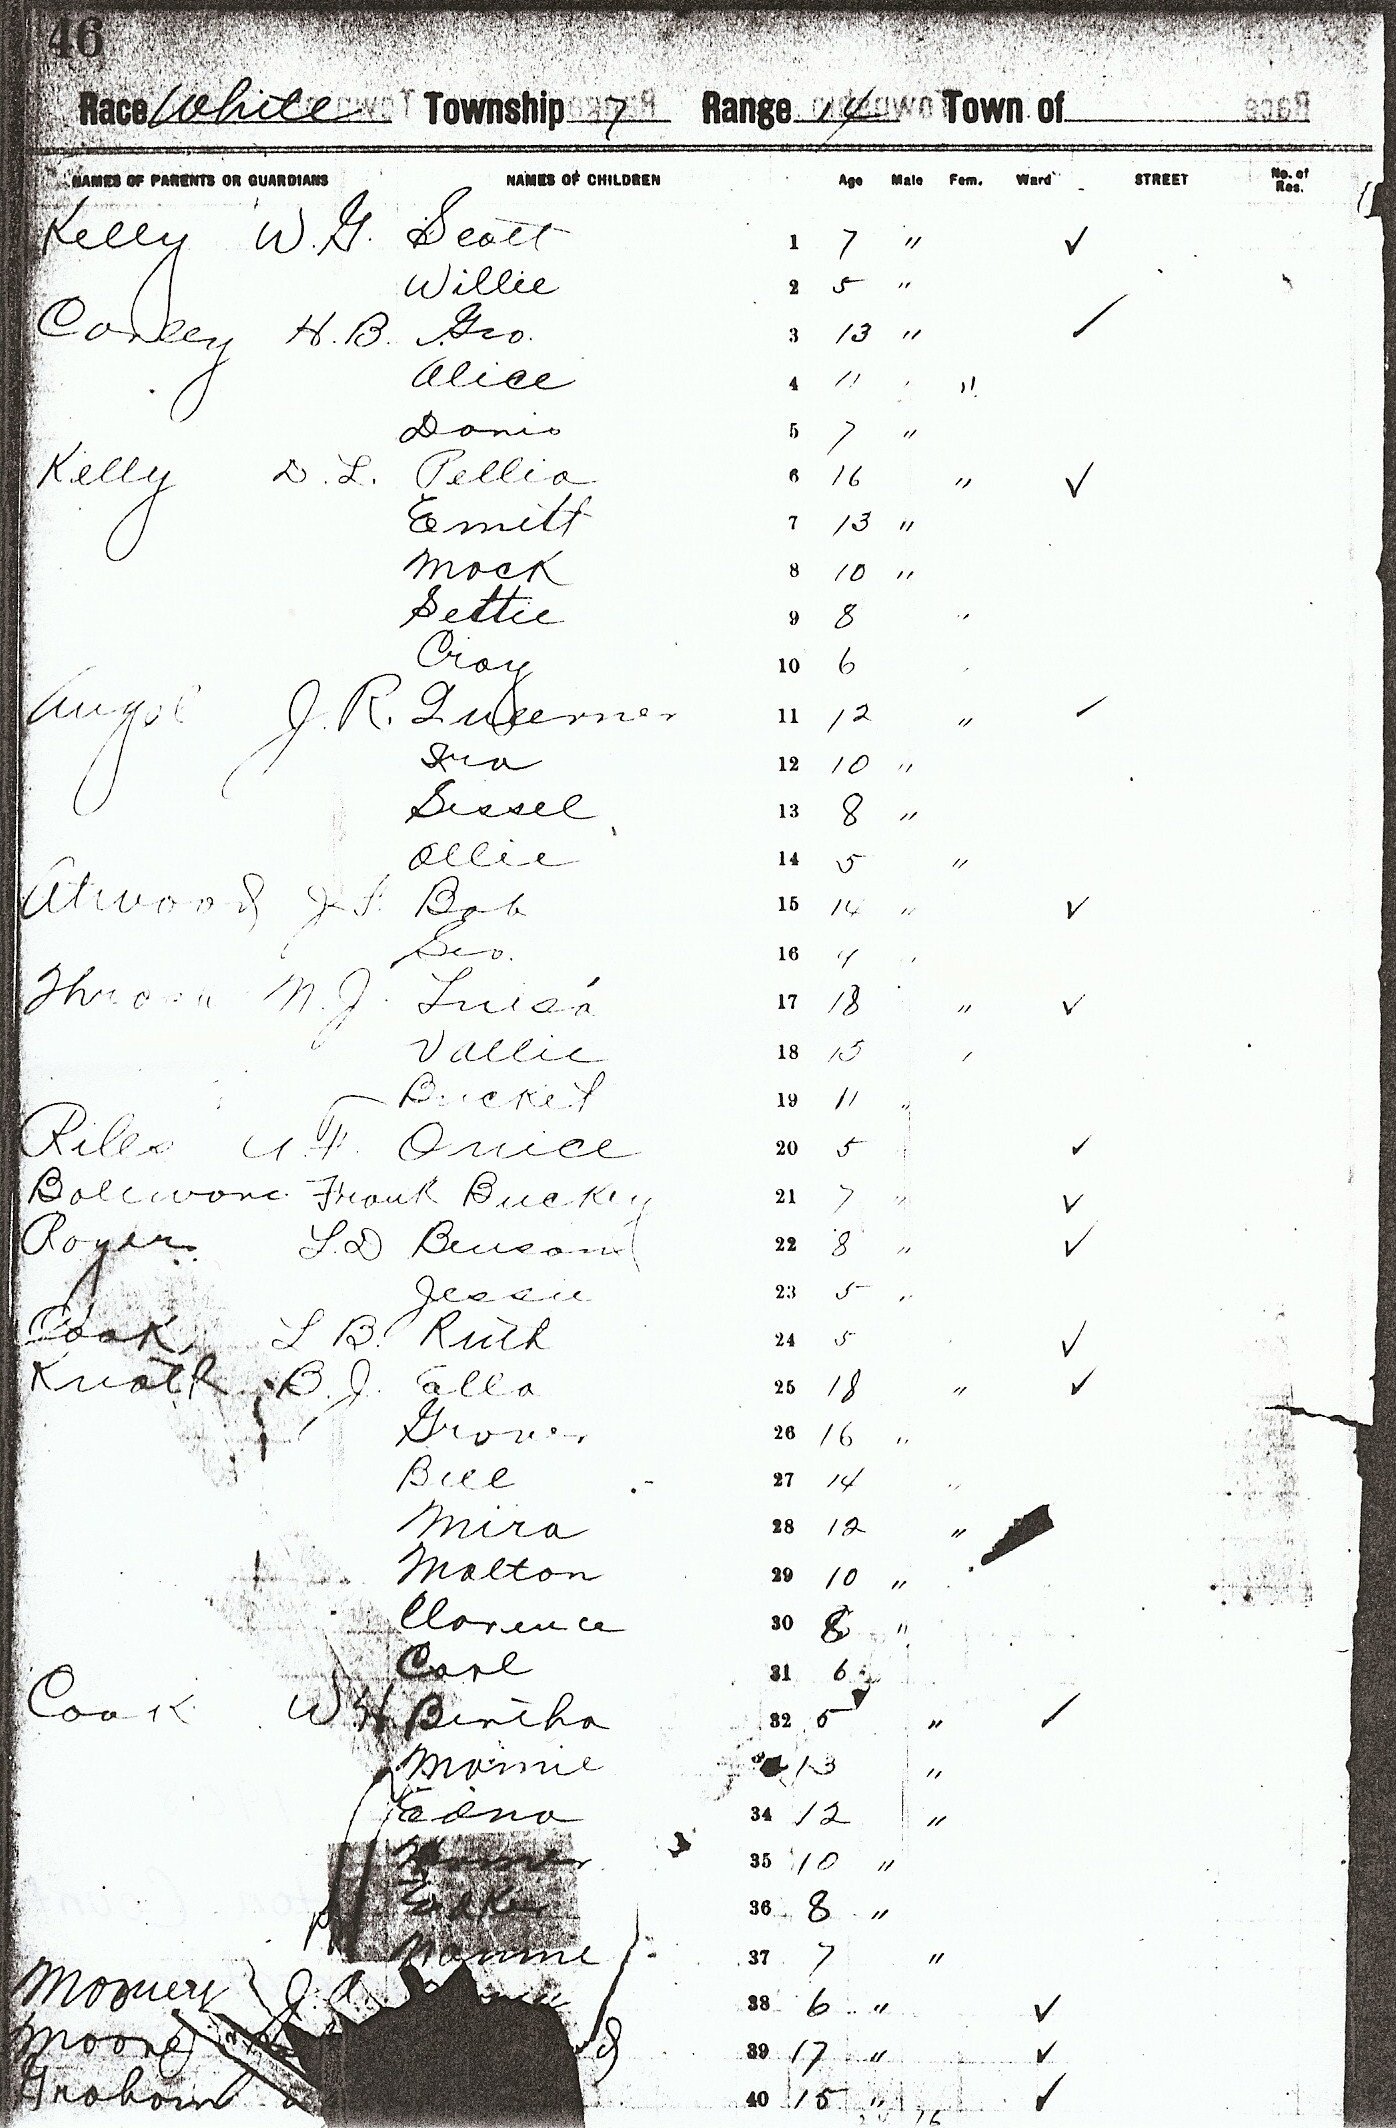 46
Race White Township 7 Range 14 Town of
NAMES OF PARENTS OR GUARDIANS NAMES OF CHILDREN Age Male Fem. Ward STREET No. of Res.
Kelly W. G. Scott 1 7 " ✓
Willie 2 5 "
Conley H. B. Geo. 3 13 " ✓
Alice 4 11 "
5 7 "
Kelly D. L. 6 16 " ✓
Emitt 7 13 "
Mack 8 10 "
Settie 9 8 "
Cray 10 6
J. R. 11 12 " ✓
Ira 12 10 "
Sissel 13 8 "
Ollie 14 5 "
Atwood J. S. Bob 15 14 " ✓
Geo. 16
M. J. Luisa 17 18 " ✓
Vallie 18 15
Bucket 19 11 "
Riles 20 5 ✓
Frank Buckey 21 7 " ✓
Roger L. D Benson 22 8 " ✓
Jessie 23 5 "
Cook L B. Ruth 24 5 ✓
Knott B. J. Ella 25 18 " ✓
Grover 26 16 "
Bill 27 14 "
Mira 28 12 "
Malton 29 10 "
Clarence 30 8 "
Carl 31 6
Cook W H Birtha 32 5 " ✓
Mamie 13 "
Edna 34 12 "
Homer 35 10 "
36 8 "
37 7 "
J. A. 38 6 " ✓
Moore 39 17 " ✓
Graham 40 15 " ✓